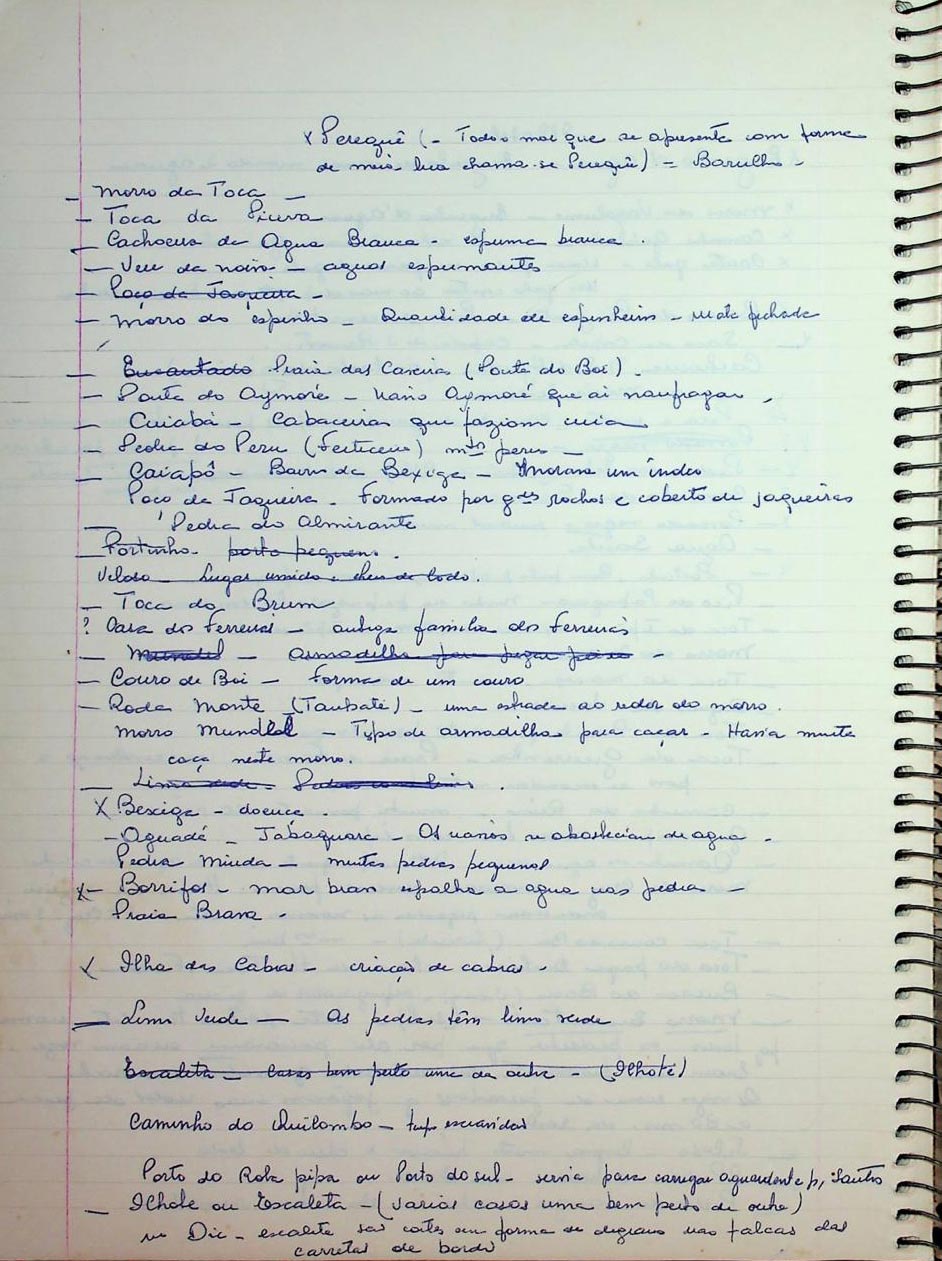 x Perequê (- Todo o mar que se apresenta com forma
de meia lua chama-se Perequê) = Barulho -
- Morro da Toca -
- Toca da
- Cachoeira de Agua Branca - espuma branca.
- Veu da noiva - aguas espumantes
- Poço da Jaqueira -
- Morro do espinho - Quantidade de espinheiro - Mata fechada
- Encantado Praia das Caveiras (Ponta do Boi).
- Ponta do Aymoré - Navio Aymoré que ai naufragou,
- Cuiabá - Cabaceiras que faziam cuia
- Pedra do Peru (Feiticeira) mtos perus -
- Caiapô - Bairro da Bexiga - Morava um índio
Poço da Jaqueira - Formado por gdes rochas e coberto de jaqueiras
- Pedra do Almirante
- Portinho - porto pequeno.
Veloso - Lugar umido e cheio de lodo.
- Toca do Brum
? Casa dos Ferreiras - antiga familia dos Ferreiras
- Mundel - Armadilha para pegar peixe -
- Couro de Boi - Forma de um couro
- Roda Monte (Taubaté) - uma estrada ao redor do morro.
Morro Mundel - Typo de armadilha para caçar - Havia muita
caça neste morro.
- Limo verde - Pedras com limo.
X Bexiga - doença.
- Aguada - Jabaquara - Os navios se abasteciam de agua.
Pedra Miuda - muitas pedras pequenas
x- Borrifos - mar bravo espalha a agua nas pedras -
Praia Brava -
x Ilha das Cabras - criação de cabras -
- Limo Verde - As pedras têm limo verde
Escaleta - Casas bem perto uma da outra - (Ilhote)
Caminho do Quilombo - tempo escravidão
Porto do Rola pipa ou Porto do sul - servia para carregar aguardente p/ Santos
- Ilhote ou Escaleta - (varias casas uma bem perto da outra)
no Dic - escaleta são cortes em forma de degraus nas falcas das
carretas de bordo